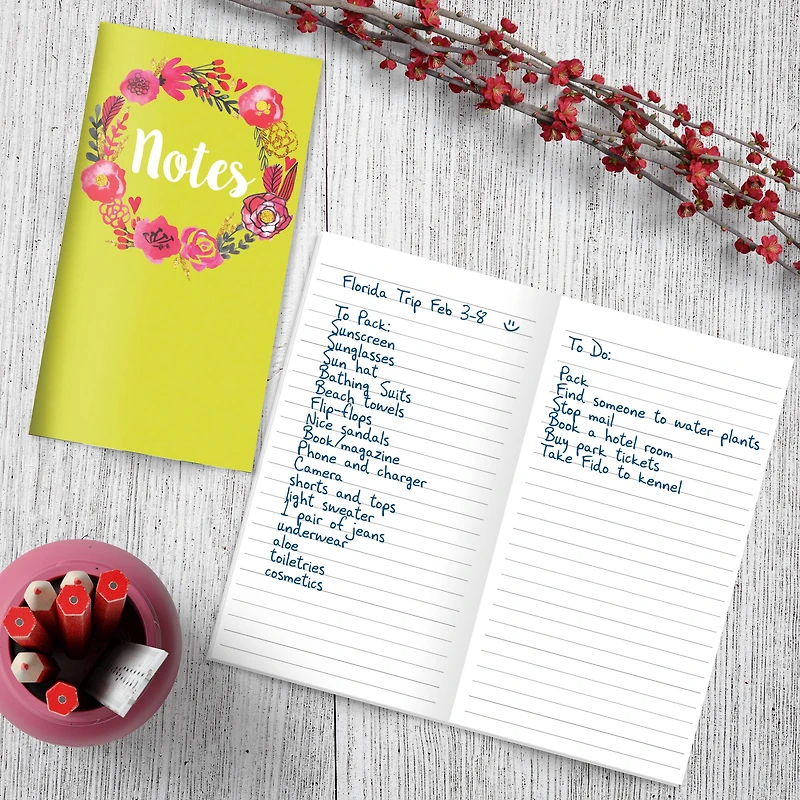 Notes
Florida Trip Feb 3-8
To Pack:
Sunscreen
Sunglasses
Sun hat
Bathing Suits
Beach towels
Flip-flops
Nice sandals
Book/magazine
Phone and charger
Camera
shorts and tops
light sweater
1 pair of jeans
underwear
aloe
toiletries
cosmetics
To Do:
Pack
Find someone to water plants
Stop mail
Book a hotel room
Buy park tickets
Take Fido to kennel